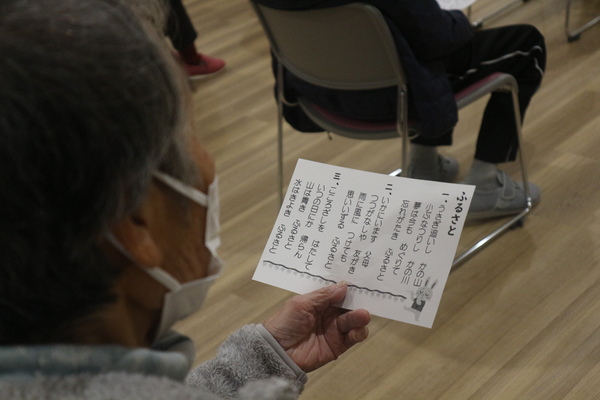 ふるさと
一、うさぎ追いし かの山
小ぶなつりし かの川
夢は今も めぐりて
忘れがたき ふるさと
二、いかにいます 父母
つつがなしや 友がき
雨に風に つけても
思いいずる ふるさと
三、こころざしを はたして
いつの日にか 帰らん
山は青き ふるさと
水は清き ふるさと